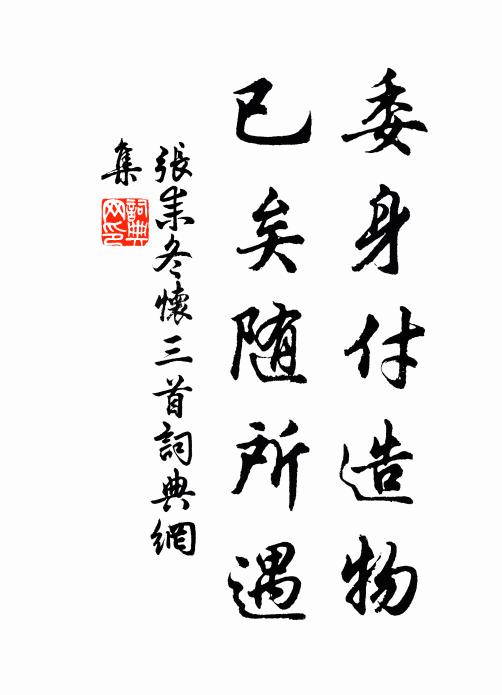 委身付造物
已矣随所遇
張耒冬懷三首詞典網
集
詞典網印